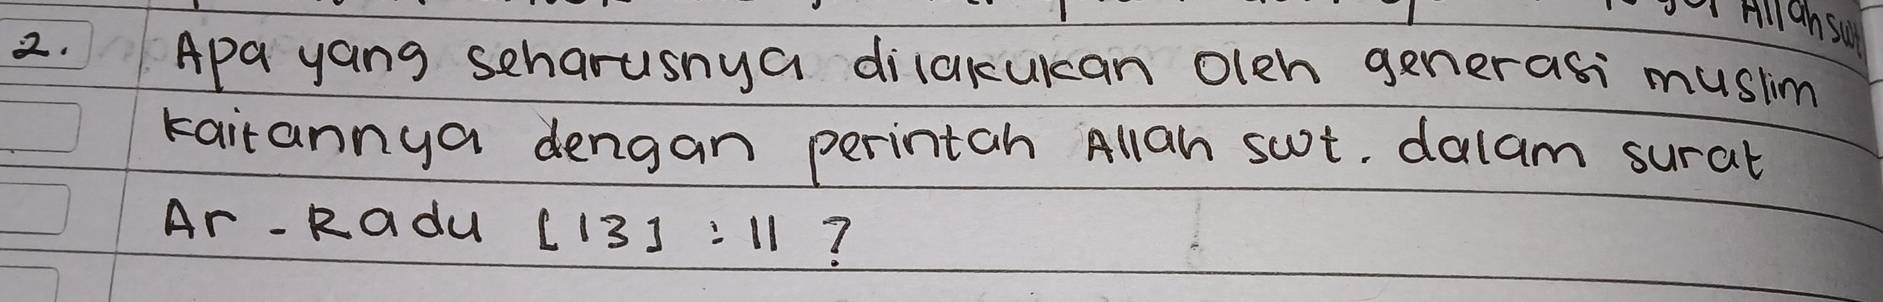 Allah swt
2. Apa yang seharusnya dilakukan oleh generasi muslim
kaitannya dengan perintah Allah swt. dalam surat
Ar-Radu [13] : 11 ?